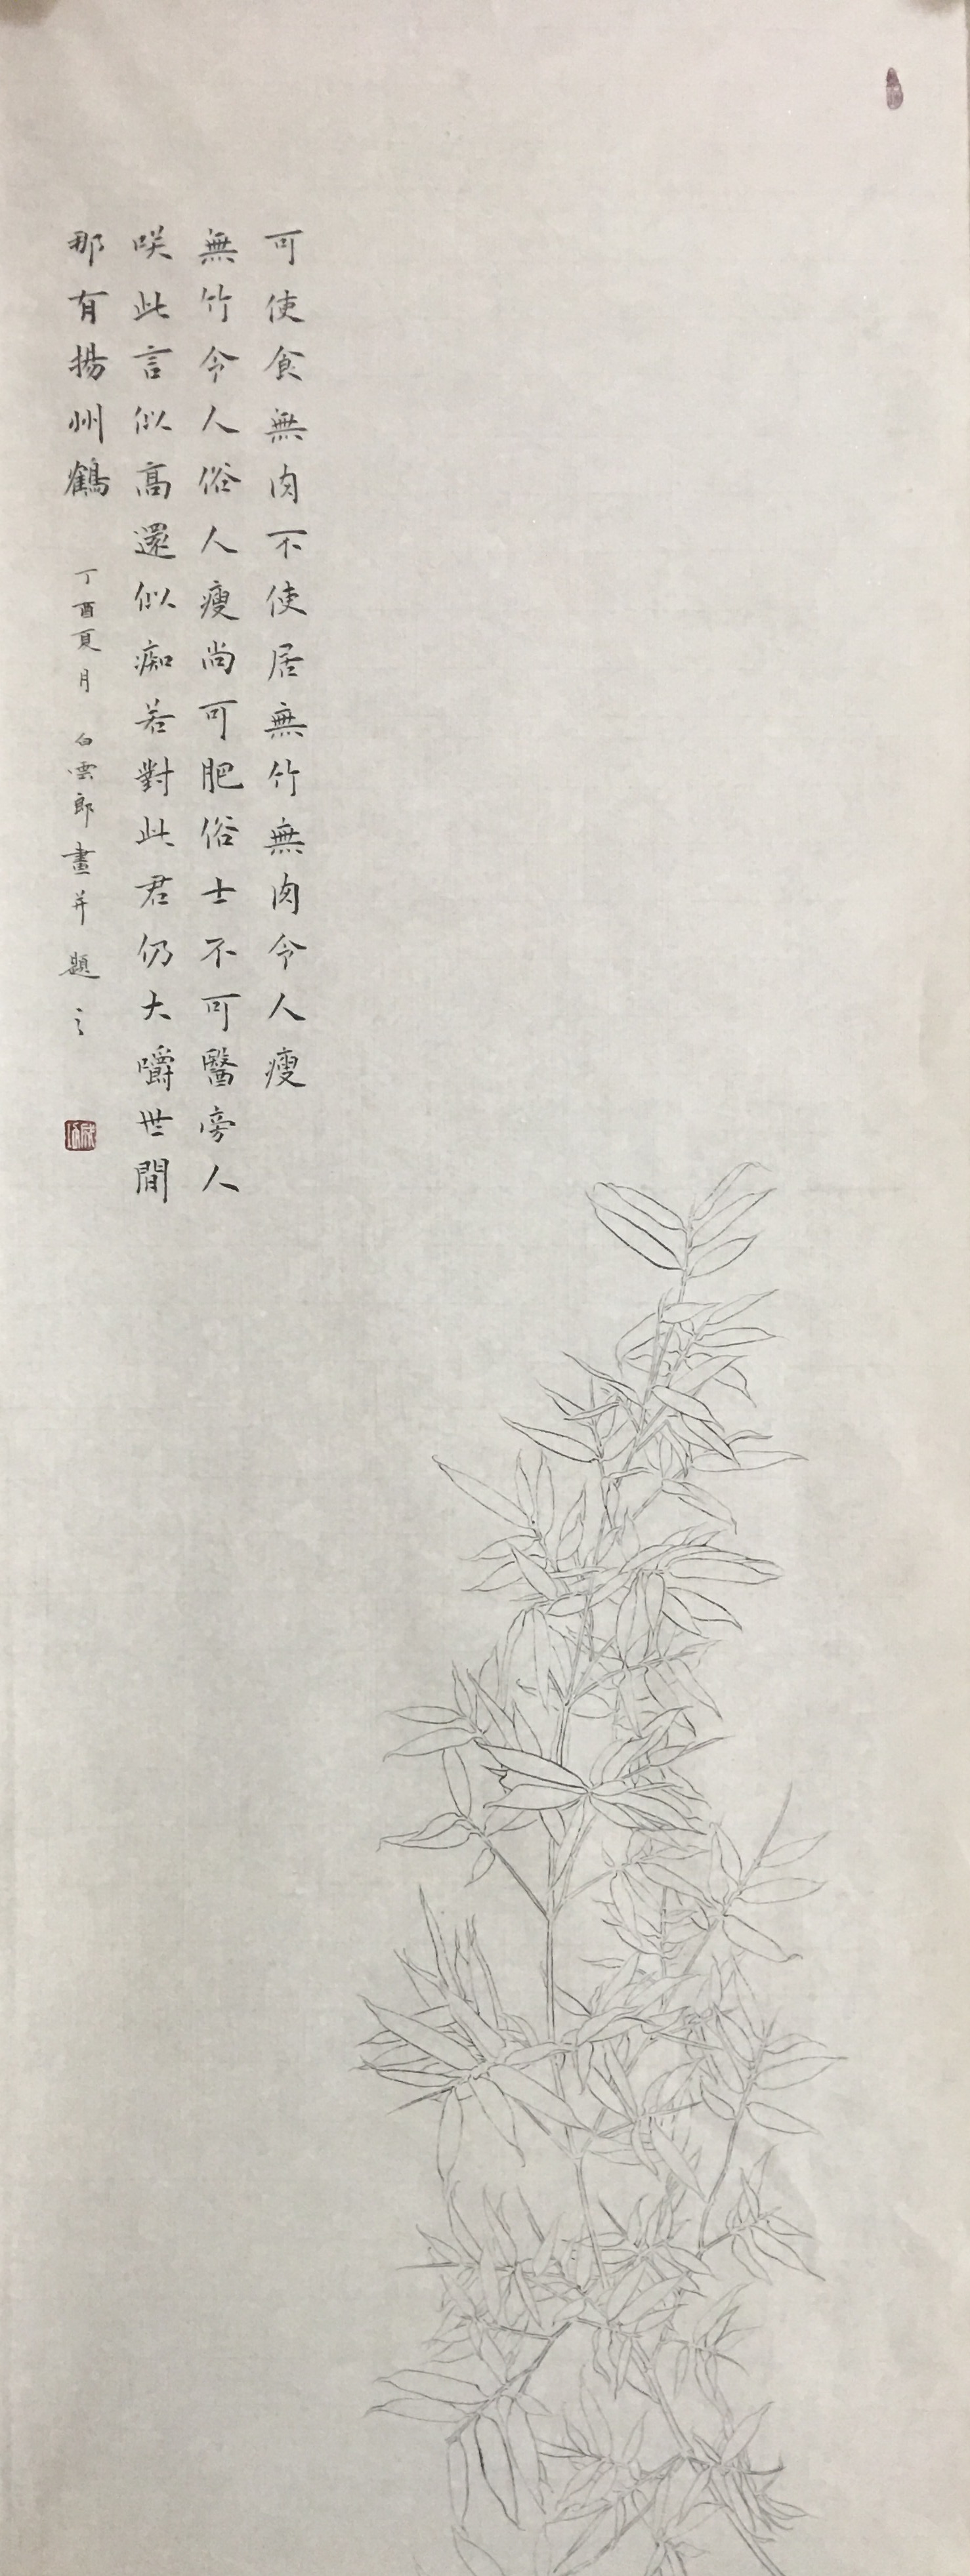 可使食無肉不使居無竹無肉令人瘦
無竹令人俗人瘦尚可肥俗士不可醫旁人
咲此言似高還似痴若對此君仍大嚼世間
那有揚州鶴 丁酉夏月 白雲郎畫并題之